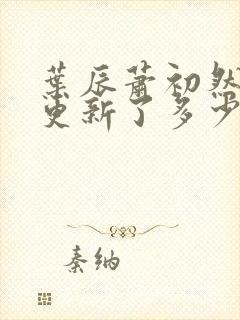 葉辰蕭初然
更新了多少
秦纳